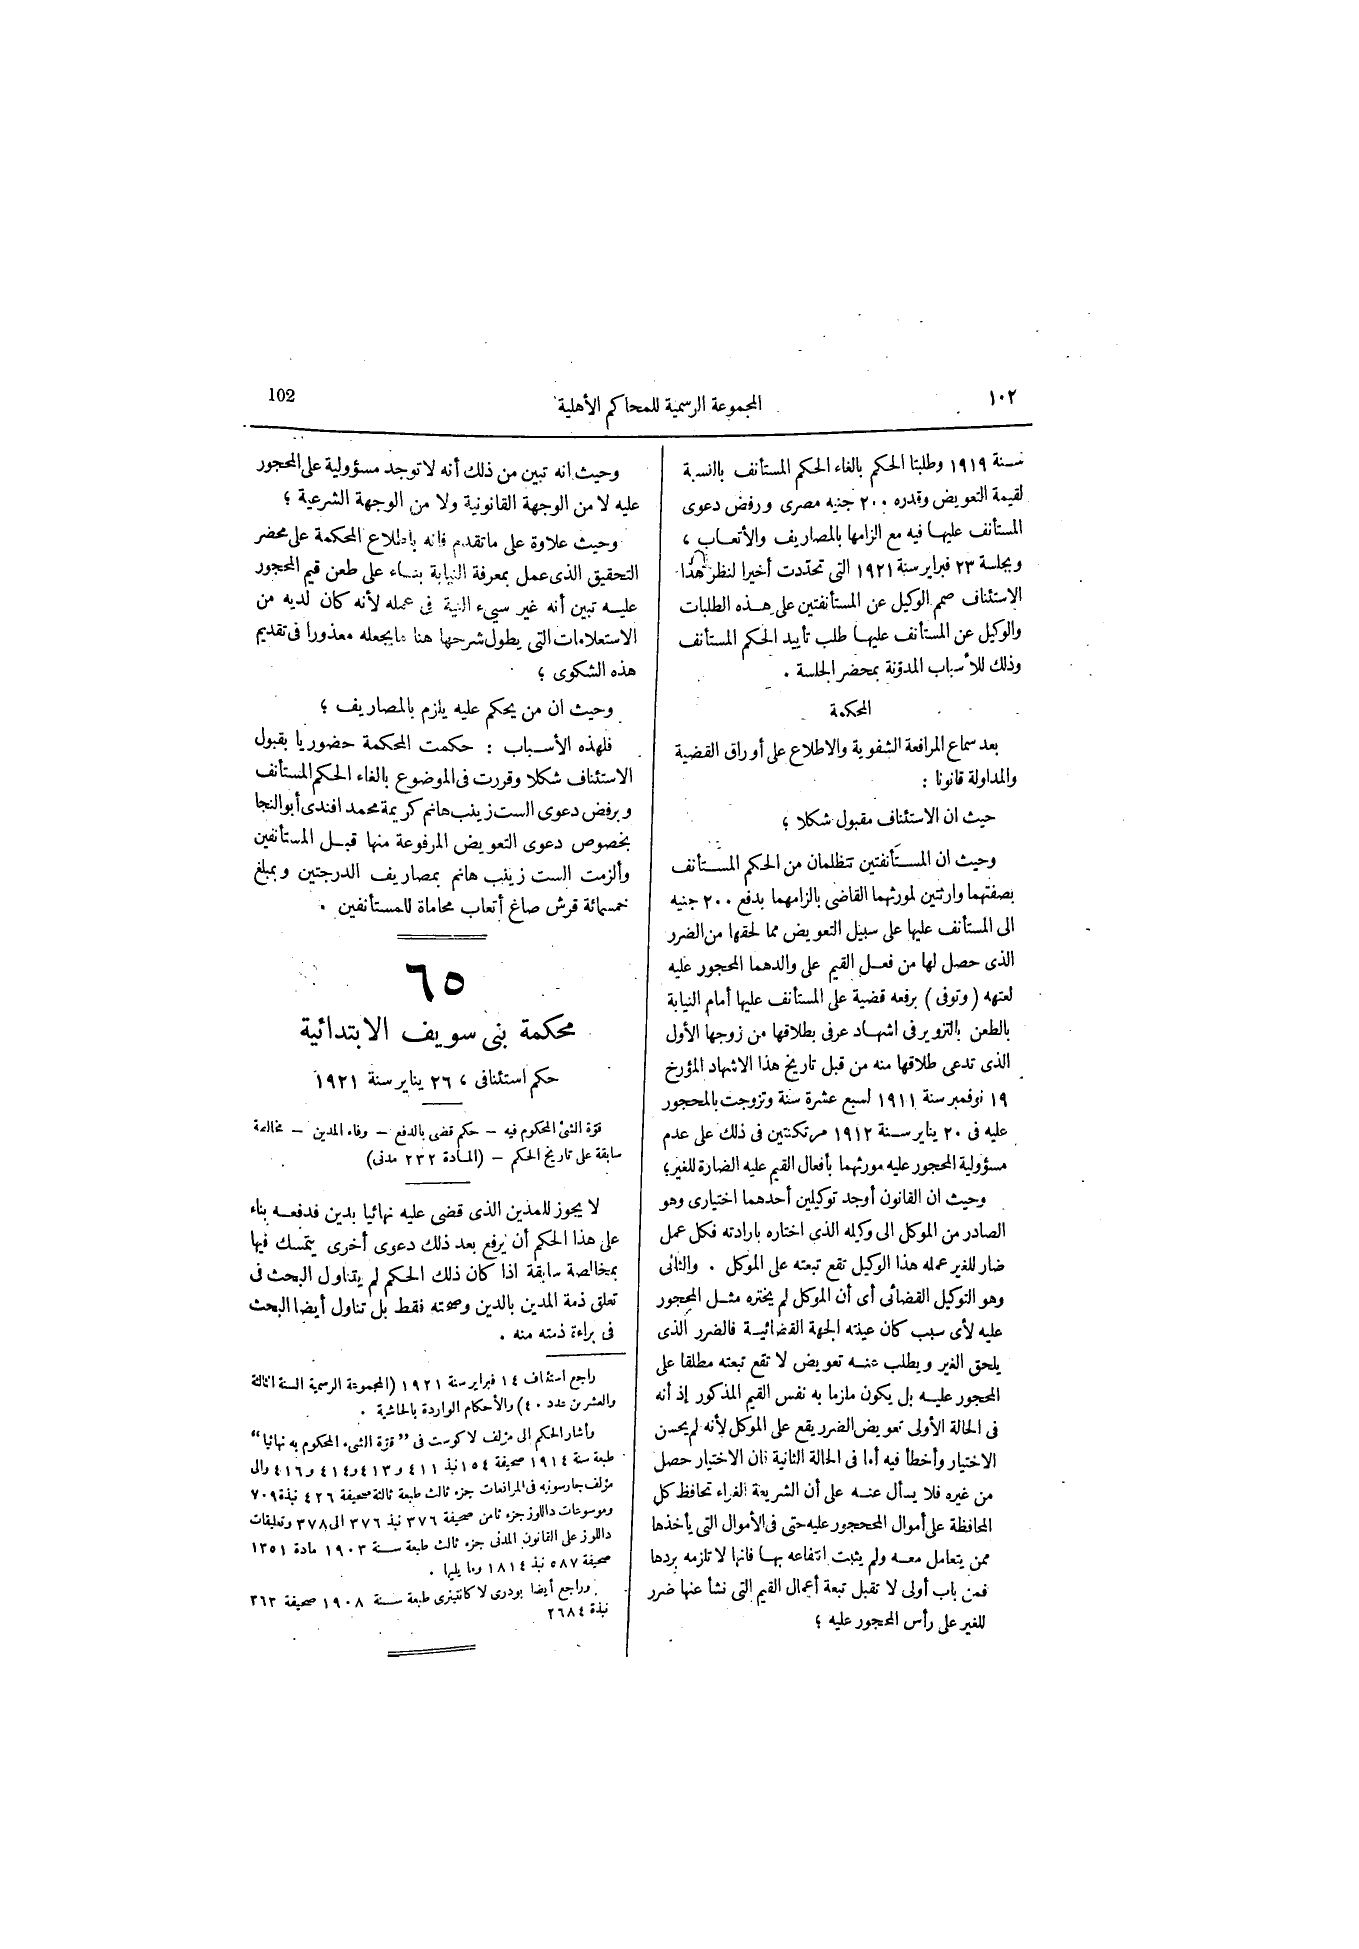 ١٠٢
المجموعة الرسمية للمحاكم الأهلية
102
سنة ١٩١٩ وطلبتا الحكم بالغاء الحكم المستأنف بالنسبة
لقيمة التعويض وقدره ٢٠٠ جنيه مصرى ورفض دعوى
المستأنف عليها فيه مع الزامها بالمصاريف والأتعاب ،
وبجلسة ٢٣ فبراير سنة ١٩٢١ التى تحدّدت أخيرا لنظر هذا
الاستئناف صمم الوكيل عن المستأنفتين على هذه الطلبات
والوكيل عن المستأنف عليها طلب تأييد الحكم المستأنف
وذلك للأسباب المدوّنة بمحضر الجلسة .
المحكمة
بعد سماع المرافعة الشفوية والاطلاع على أوراق القضية
والمداولة قانونا :
حيث ان الاستئناف مقبول شكلا ؛
وحيث ان المستأنفتين تتظلمان من الحكم المستأنف
بصفتهما وارثتين لمورثهما القاضى بالزامهما بدفع ٢٠٠ جنيه
الى المستأنف عليها على سبيل التعويض مما لحقها من الضرر
الذى حصل لها من فعل القيم على والدهما المحجور عليه
لعتهه (وتوفى) برفعه قضية على المستأنف عليها أمام النيابة
بالطعن بالتزوير فى اشهاد عرفى بطلاقها من زوجها الأول
الذى تدعى طلاقها منه من قبل تاريخ هذا الاشهاد المؤرخ
١٩ نوفمبر سنة ١٩١١ لسبع عشرة سنة وتزوجت بالمحجور
عليه فى ٢٠ يناير سنة ١٩١٢ مرتكنتين فى ذلك على عدم
مسؤولية المحجور عليه مورثهما بأفعال القيم عليه الضارة للغير؛
وحيث ان القانون أوجد توكيلين أحدهما اختيارى وهو
الصادر من الموكل الى وكيله الذى اختاره بارادته فكل عمل
ضار للغير عمله هذا الوكيل تقع تبعته على الموكل . والثانى
وهو التوكيل القضائى أى أن الموكل لم يختره مثل المحجور
عليه لأى سبب كان عينته الجهة القضائية فالضرر الذى
يلحق الغير ويطلب عنه تعويض لا تقع تبعته مطلقا على
المحجور عليه بل يكون ملزما به نفس القيم المذكور إذ أنه
فى الحالة الأولى تعويض الضرر يقع على الموكل لأنه لم يحسن
الاختيار وأخطأ فيه أما فى الحالة الثانية فان الاختيار حصل
من غيره فلا يسأل عنه على أن الشريعة الغراء تحافظ كل
المحافظة على أموال المحجور عليه حتى فى الأموال التى يأخذها
ممن يتعامل معه ولم يثبت انتفاعه بها فانها لا تلزمه بردها
فمن باب أولى لا تقبل تبعة أعمال القيم التى نشأ عنها ضرر
للغير على رأس المحجور عليه ؛
وحيث انه تبين من ذلك أنه لا توجد مسؤولية على المحجور
عليه لا من الوجهة القانونية ولا من الوجهة الشرعية ؛
وحيث علاوة على ما تقدم فانه باطلاع المحكمة على محضر
التحقيق الذى عمل بمعرفة النيابة بناء على طعن قيم المحجور
عليه تبين أنه غير سيىء النية فى عمله لأنه كان لديه من
الاستعلامات التى يطول شرحها هنا ما يجعله معذورا فى تقديم
هذه الشكوى ؛
وحيث ان من يحكم عليه يلزم بالمصاريف ؛
فلهذه الأسباب : حكمت المحكمة حضوريا بقبول
الاستئناف شكلا وقررت فى الموضوع بالغاء الحكم المستأنف
وبرفض دعوى الست زينب هانم كريمة محمد افندى أبو النجا
بخصوص دعوى التعويض المرفوعة منها قبل المستأنفين
وألزمت الست زينب هانم بمصاريف الدرجتين وبمبلغ
خمسمائة قرش صاغ أتعاب محاماة للمستأنفين .
٦٥
محكمة بنى سويف الابتدائية
حكم استئنافى ، ٢٦ يناير سنة ١٩٢١
قوّة الشئ المحكوم فيه – حكم قضى بالدفع – وفاء المدين – مخالصة
سابقة على تاريخ الحكم – (المادة ٢٣٢ مدنى)
لا يجوز للمدين الذى قضى عليه نهائيا بدين فدفعه بناء
على هذا الحكم أن يرفع بعد ذلك دعوى أخرى يتمسك فيها
بمخالصة سابقة اذا كان ذلك الحكم لم يتناول البحث فى
تعلق ذمة المدين بالدين وصحته فقط بل تناول أيضا البحث
فى براءة ذمته منه .
راجع استئناف ١٤ فبراير سنة ١٩٢١ (المجموعة الرسمية السنة الثالثة
والعشرين عدد ٤٠) والأحكام الواردة بالحاشية .
وأشار الحكم الى مؤلف لاكوست فى "قوّة الشىء المحكوم به نهائيا"
طبعة سنة ١٩١٤ صحيفة ١٥٤ نبذ ٤١١ و٤١٣ و٤١٤ و٤١٦ والى
مؤلف جارسونيه فى المرافعات جزء ثالث طبعة ثالثة صحيفة ٤٢٦ نبذة ٧٠٩
وموسوعات داللوز جزء ثامن صحيفة ٣٧٦ نبذ ٣٧٦ الى ٣٧٨ وتعليقات
داللوز على القانون المدنى جزء ثالث طبعة سنة ١٩٠٣ مادة ١٣٥١
صحيفة ٥٨٧ نبذ ١٨١٤ وما يليها .
وراجع أيضا بودرى لاكانتينرى طبعة سنة ١٩٠٨ صحيفة ٣٦٣
نبذة ٢٦٨٤